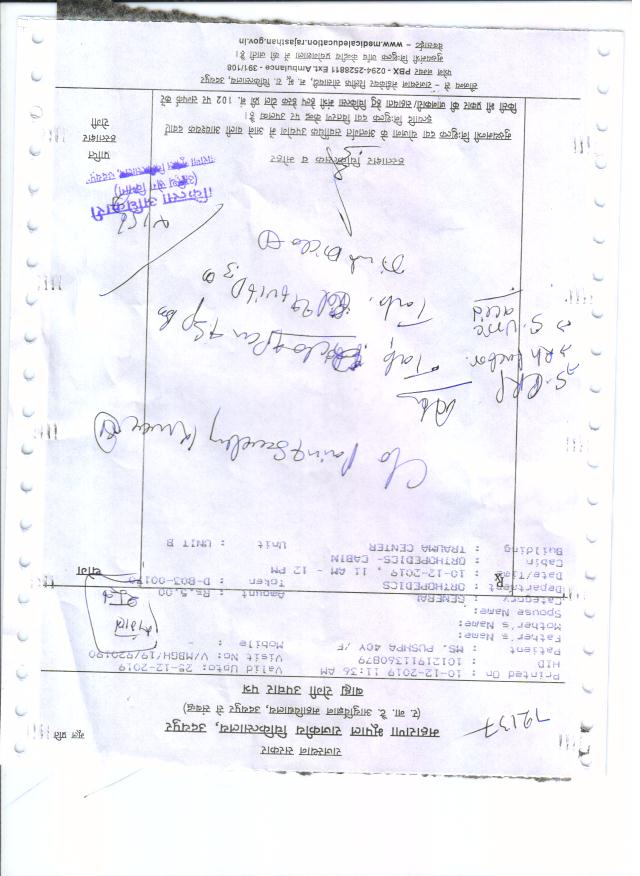 राजस्थान सरकार
मूल प्रति
72137
महाराणा भूपाल राजकीय चिकित्सालय, उदयपुर
(र. ना. टै. आयुर्विज्ञान महाविद्यालय, उदयपुर से संबद्ध)
बाह्य रोगी उपचार पत्र
Printed On : 10-12-2019 11:36 AM Valid Upto: 25-12-2019
HID : 101219113609879 Visit No: V/MBGH/19/920190
Patient : MS. PUSHPA 40Y /F Mobile : -
Father's Name:
Mother's Name:
Spouse Name:
Category : GENERAL Amount : Rs.5.00
Department : ORTHOPEDICS Token : D-B03-00170
Date/Time : 10-12-2019 , 11 AM - 12 PM
Cabin : ORTHOPEDICS- CABIN
Building : TRAUMA CENTER Unit : UNIT B
Rx
रोग
C/o Pain & Swelling Knee
Adv
S. CRP
Rh factor
S. Uric acid
Tab.
Tab.
चिकित्सा अधिकारी
(अस्थि रोग विभाग)
हस्ताक्षर चिकित्सक व मोहर
प्राप्ति
हस्ताक्षर
रोगी
मुख्यमंत्री निःशुल्क दवा योजना के अन्तर्गत सर्वाधिक उपयोग में आने वाली आवश्यक दवाएं
इत्यादि निःशुल्क दवा वितरण केन्द्र पर उपलब्ध है।
किसी भी प्रकार की जानकारी/ सहायता हेतु चिकित्सा मंत्री हैल्प डेस्क टोल फ्री नं. 102 पर सम्पर्क करें
सौजन्य से - राजस्थान मेडिकेयर रिलीफ सोसायटी, म. भू. रा. चिकित्सालय, उदयपुर
फोन नम्बर PBX - 0294-2528811 Ext. Ambulance - 391/108
मुख्यमंत्री निःशुल्क जाँच केन्द्रीय प्रयोगशाला में की जाती है।
वेबसाईट - www.medicaleducation.rajasthan.gov.in